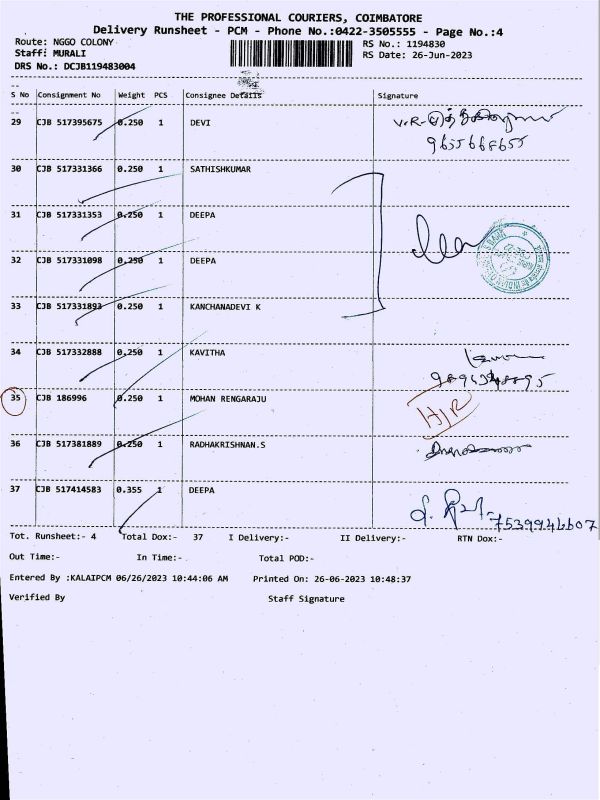 THE PROFESSIONAL COURIERS, COIMBATORE
Delivery Runsheet - PCM - Phone No.:0422-3505555 - Page No.:4
Route: NGGO COLONY RS No.: 1194830
Staff: MURALI RS Date: 26-Jun-2023
DRS No.: DCJB119483004
--
S No Consignment No Weight PCS Consignee Details Signature
--
29 CJB 517395675 0.250 1 DEVI V.R.
9655668655
30 CJB 517331366 0.250 1 SATHISHKUMAR
31 CJB 517331353 0.250 1 DEEPA
32 CJB 517331098 0.250 1 DEEPA
33 CJB 517331893 0.250 1 KANCHANADEVI K
34 CJB 517332888 0.250 1 KAVITHA
35 CJB 186996 0.250 1 MOHAN RENGARAJU
36 CJB 517381889 0.250 1 RADHAKRISHNAN.S
37 CJB 517414583 0.355 1 DEEPA
7539946607
Tot. Runsheet:- 4 Total Dox:- 37 I Delivery:- II Delivery:- RTN Dox:-
Out Time:- In Time:- Total POD:-
Entered By :KALAIPCM 06/26/2023 10:44:06 AM Printed On: 26-06-2023 10:48:37
Verified By Staff Signature